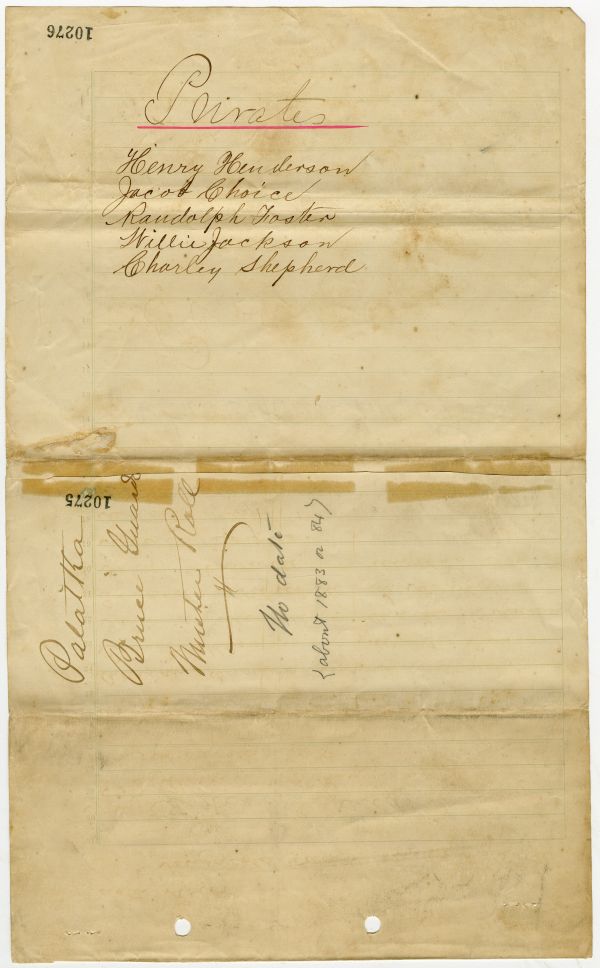 10276
Privates
Henry Henderson
Jacob Choice
Randolph Foster
Willie Jackson
Charley Shepherd
10275
Palatka
Bruce Guard
Muster Roll
No date
(about 1883 or 84)